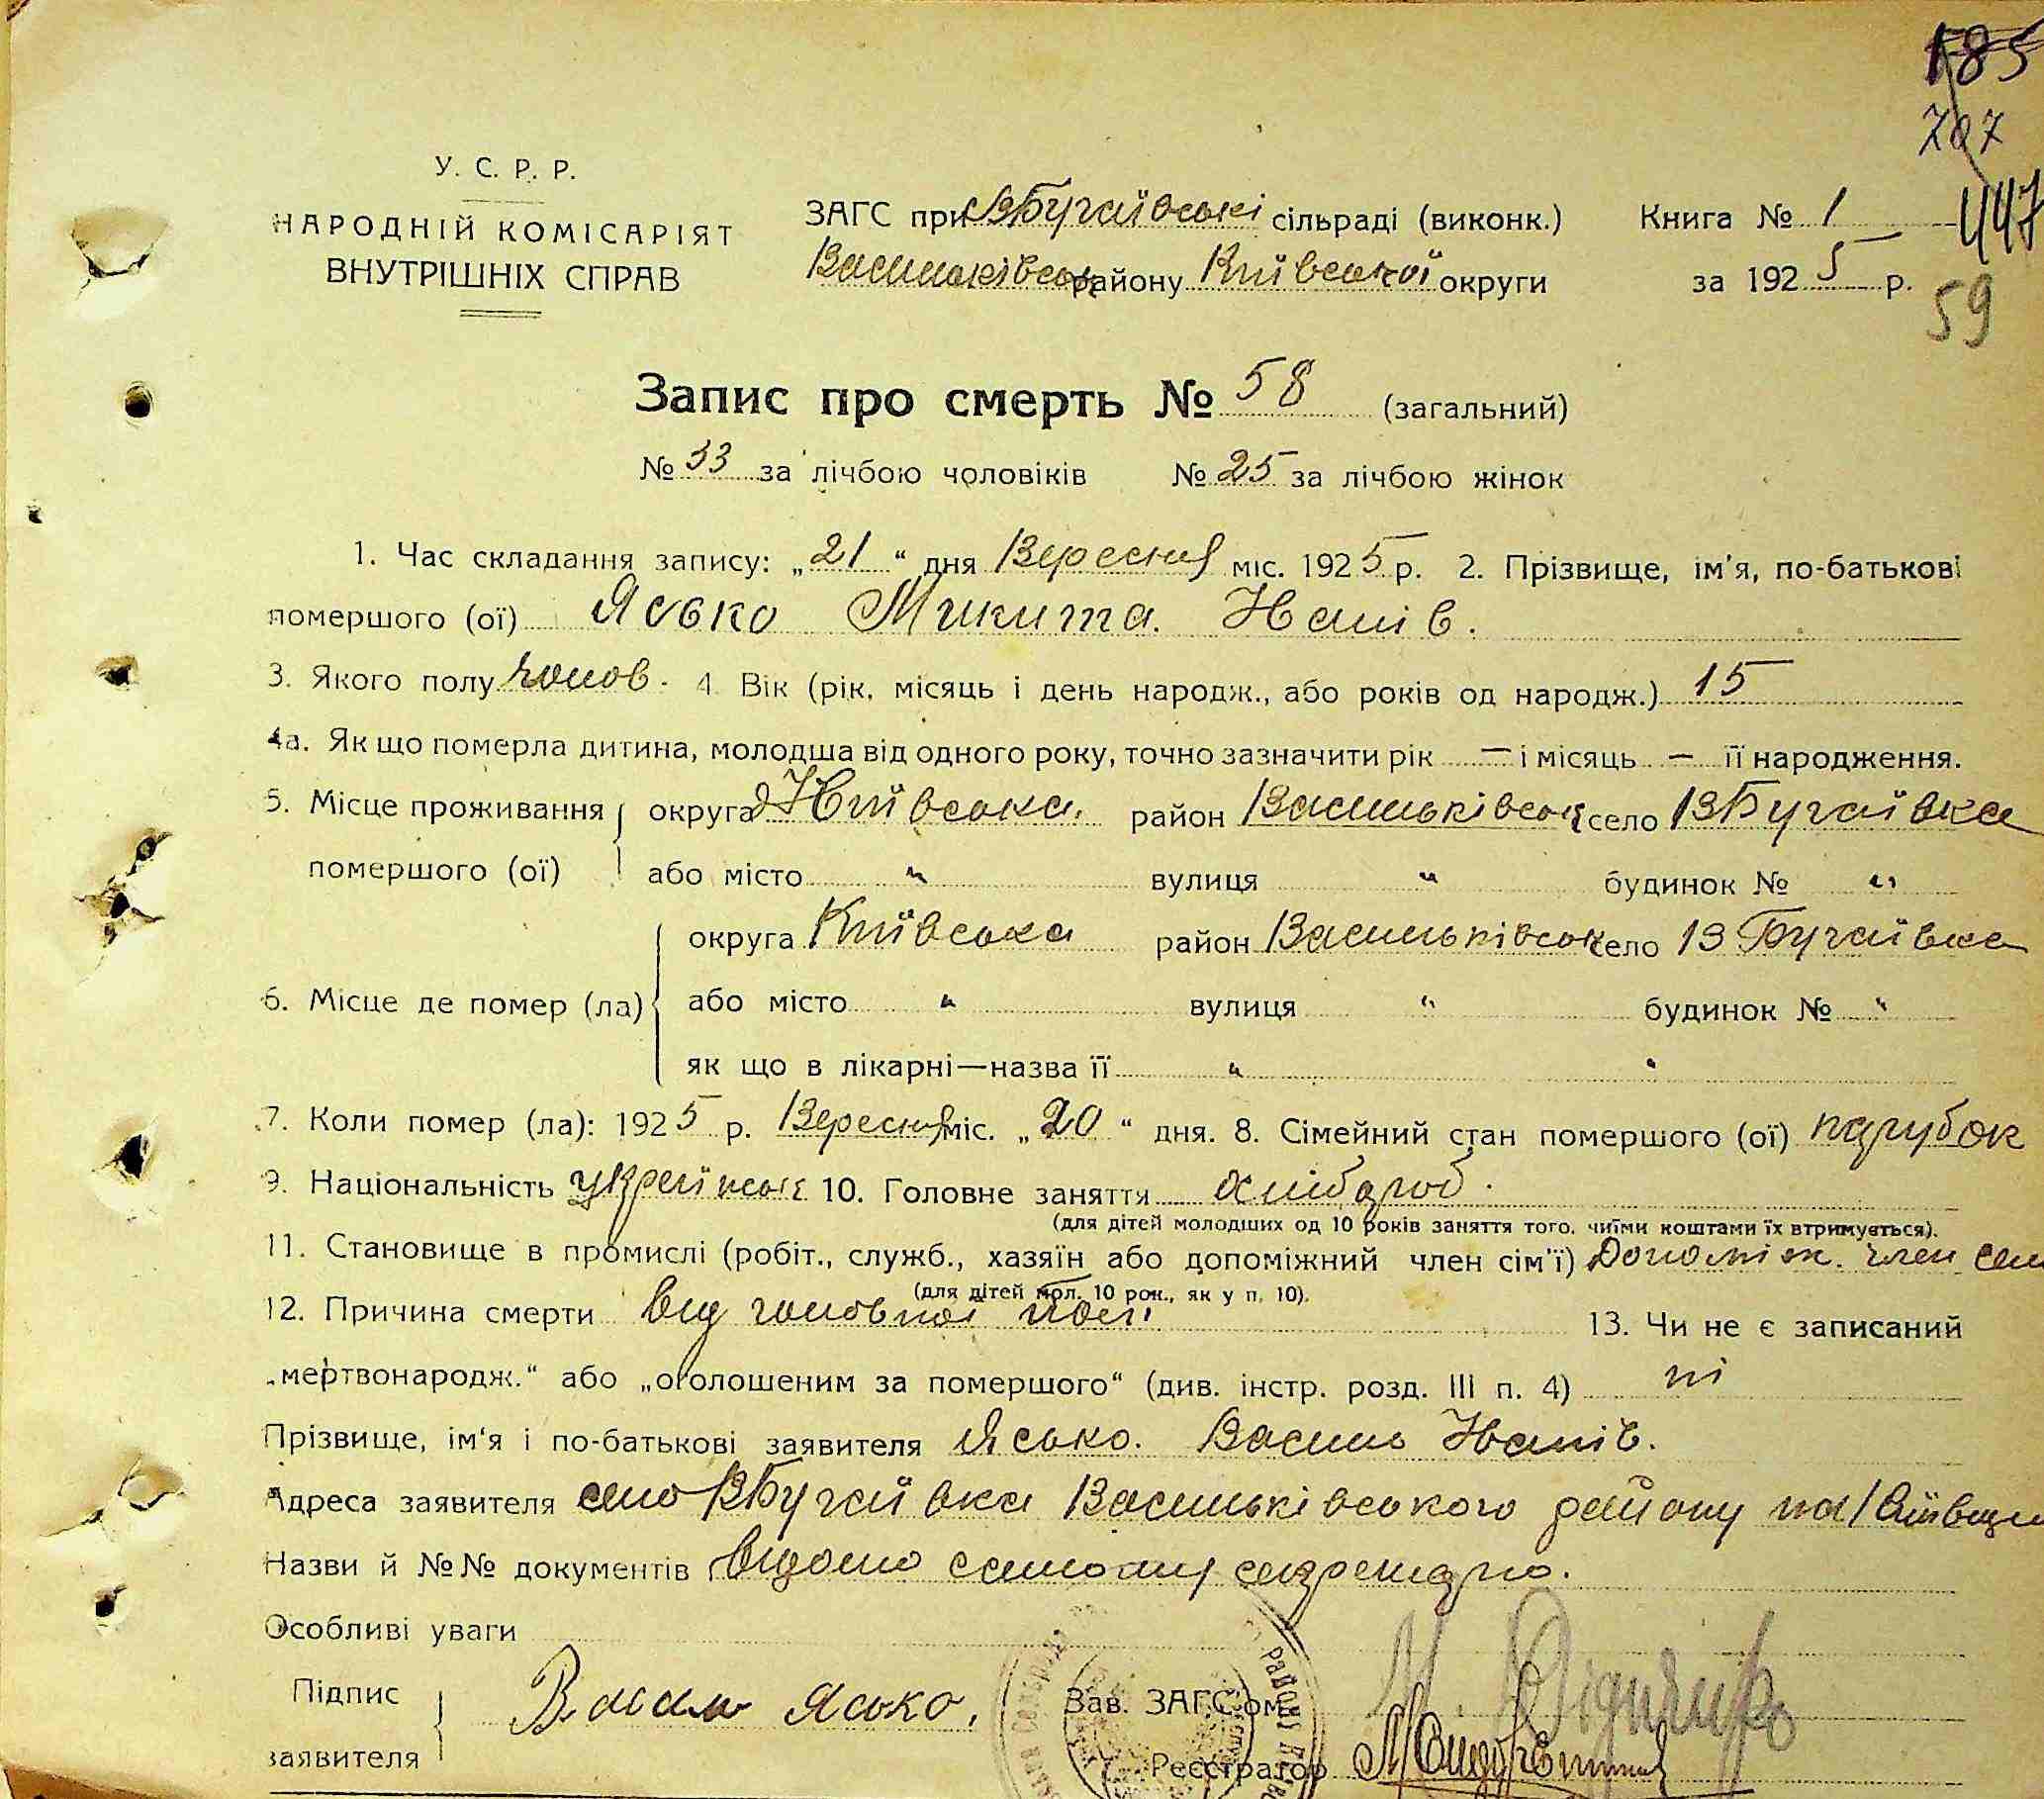 185
707
447
59
У. С. Р. Р.
НАРОДНІЙ КОМІСАРІЯТ
ВНУТРІШНІХ СПРАВ
ЗАГС при ВБугаївські сільраді (виконк.)
Васильківськ району Київської округи
Книга № 1
за 1925 р.
Запис про смерть № 58 (загальний)
№ 33 за лічбою чоловіків № 25 за лічбою жінок
1. Час складання запису: „21“ дня Вересня міс. 1925 р. 2. Прізвище, ім'я, по-батькові
помершого (ої) Ясько Микита Іванів.
3. Якого полу чолов. 4. Вік (рік, місяць і день народж., або років од народж.) 15
4а. Як що померла дитина, молодша від одного року, точно зазначити рік — і місяць — її народження.
5. Місце проживання округа Київська район Васильківськ село ВБугаївка
помершого (ої) або місто " вулиця " будинок № "
округа Київська район Васильківськ село ВБугаївка
6. Місце де помер (ла) або місто " вулиця " будинок № "
як що в лікарні—назва її " "
7. Коли помер (ла): 1925 р. Вересня міс. „20“ дня. 8. Сімейний стан помершого (ої) парубок
9. Національність 10. Головне заняття хлібороб.
(для дітей молодших од 10 років заняття того, чиїми коштами їх втримується).
11. Становище в промислі (робіт., служб., хазяїн або допоміжний член сім'ї) Допоміж. член сем
(для дітей мол. 10 рок., як у п. 10).
12. Причина смерти від головної болі 13. Чи не є записаний
„мертвонародж.“ або „оголошеним за помершого“ (див. інстр. розд. III п. 4) ні
Прізвище, ім'я і по-батькові заявителя Ясько. Василь Іванів.
Адреса заявителя село ВБугаївка Васильківського району на Київщи
Назви й №№ документів відомо самому секретарю.
Особливі уваги
Підпис
заявителя
Василь Ясько.
Зав. ЗАГС'ом
Реєстратор